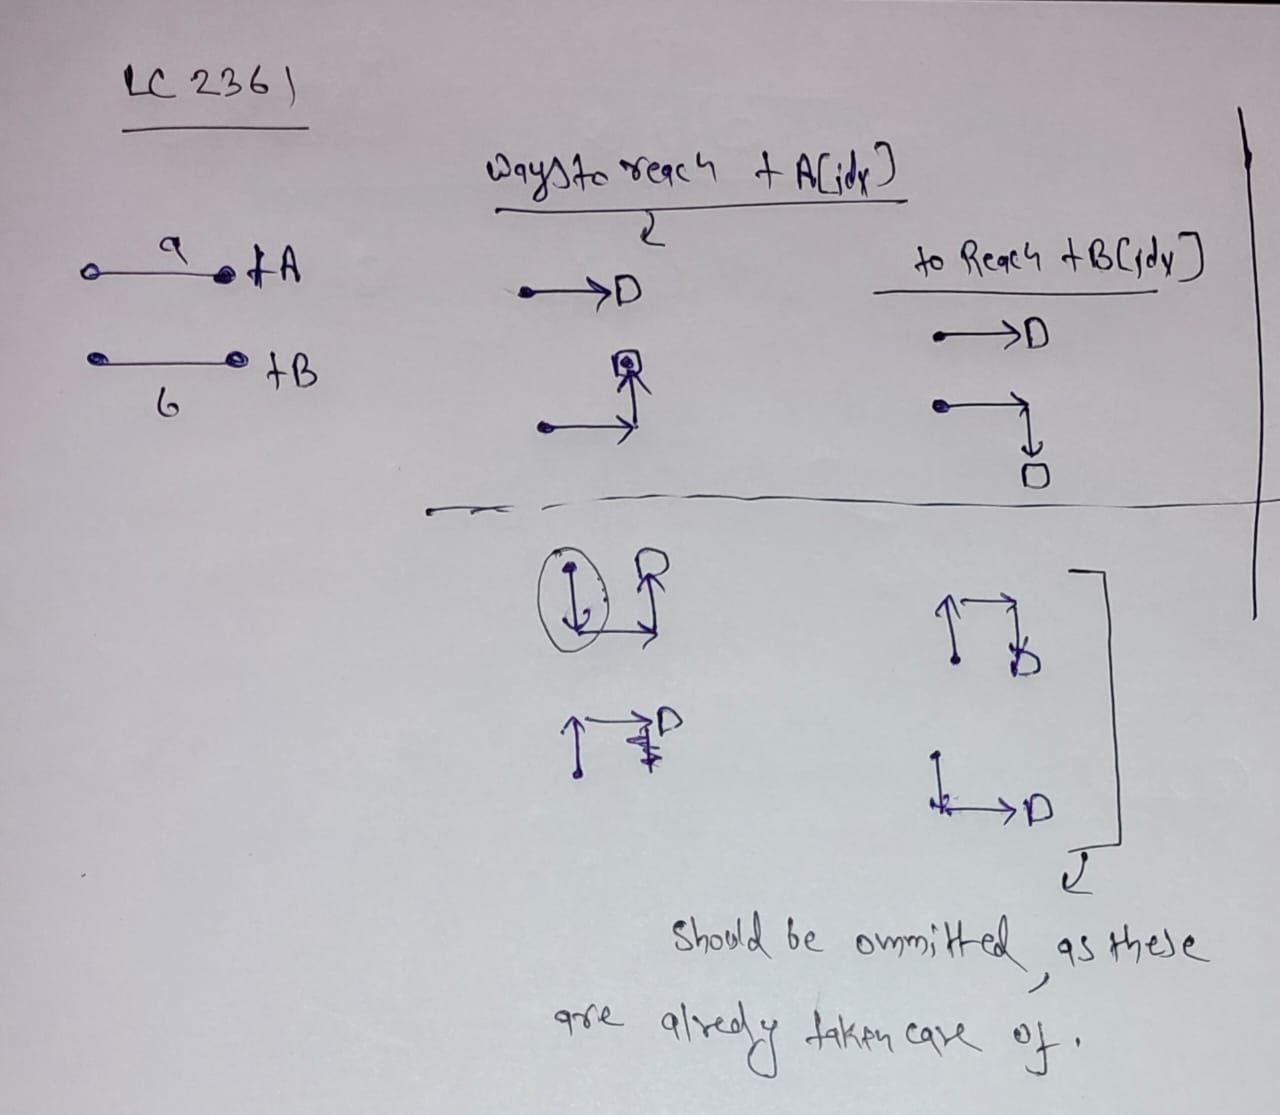 LC 2361
Ways to reach tA[idx]
to Reach tB[idx]
a
tA
D
D
tB
b
D
D
D
D
D
D
Should be ommitted, as these
are alredy taken care of.